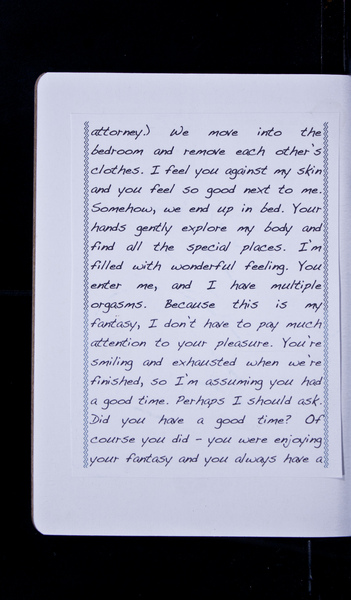 attorney.) We move into the
bedroom and remove each other's
clothes. I feel you against my skin
and you feel so good next to me.
Somehow, we end up in bed. Your
hands gently explore my body and
find all the special places. I'm
filled with wonderful feeling. You
enter me, and I have multiple
orgasms. Because this is my
fantasy, I don't have to pay much
attention to your pleasure. You're
smiling and exhausted when we're
finished, so I'm assuming you had
a good time. Perhaps I should ask.
Did you have a good time? Of
course you did - you were enjoying
your fantasy and you always have a